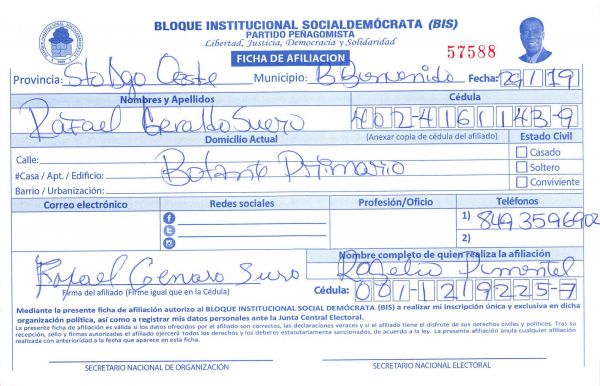 BLOQUE INSTITUCIONAL SOCIALDEMÓCRATA (BIS)
PARTIDO PEÑAGOMISTA
Libertad, Justicia, Democracia y Solidaridad
FICHA DE AFILIACION
57588
Provincia: Sto Dgo Oeste Municipio: B Bienvenido Fecha: 29/1/19
Nombres y Apellidos Cédula
Rafael Geraldo Suero 402-4161143-9
Domicilio Actual (Anexar copia de cédula del afiliado) Estado Civil
Calle: Casado
#Casa / Apt. / Edificio: Soltero
Barrio / Urbanización: Conviviente
Correo electrónico Redes sociales Profesión/Oficio Teléfonos
1) 849 3596902
2)
Nombre completo de quien realiza la afiliación
Rafael Suero Rogelio Pimentel
Firma del afiliado (Firme igual que en la Cédula) Cédula: 081-1219225-7
Mediante la presente ficha de afiliación autorizo al BLOQUE INSTITUCIONAL SOCIAL DEMÓCRATA (BIS) a realizar mi inscripción única y exclusiva en dicha
organización política, así como a registrar mis datos personales ante la Junta Central Electoral.
La presente ficha de afiliación es válida si los datos ofrecidos por el afiliado son correctos, las declaraciones veraces y si el afiliado tiene el disfrute de sus derechos civiles y políticos. Tras su
recepción, sello y firmas autorizadas el afiliado ejercerá todos los derechos y los deberes estatutariamente sancionados, de acuerdo a la ley. La presente afiliación anula cualquier afiliación
realizada con anterioridad a la fecha que aparece en esta ficha.
SECRETARIO NACIONAL DE ORGANIZACIÓN SECRETARIO NACIONAL ELECTORAL